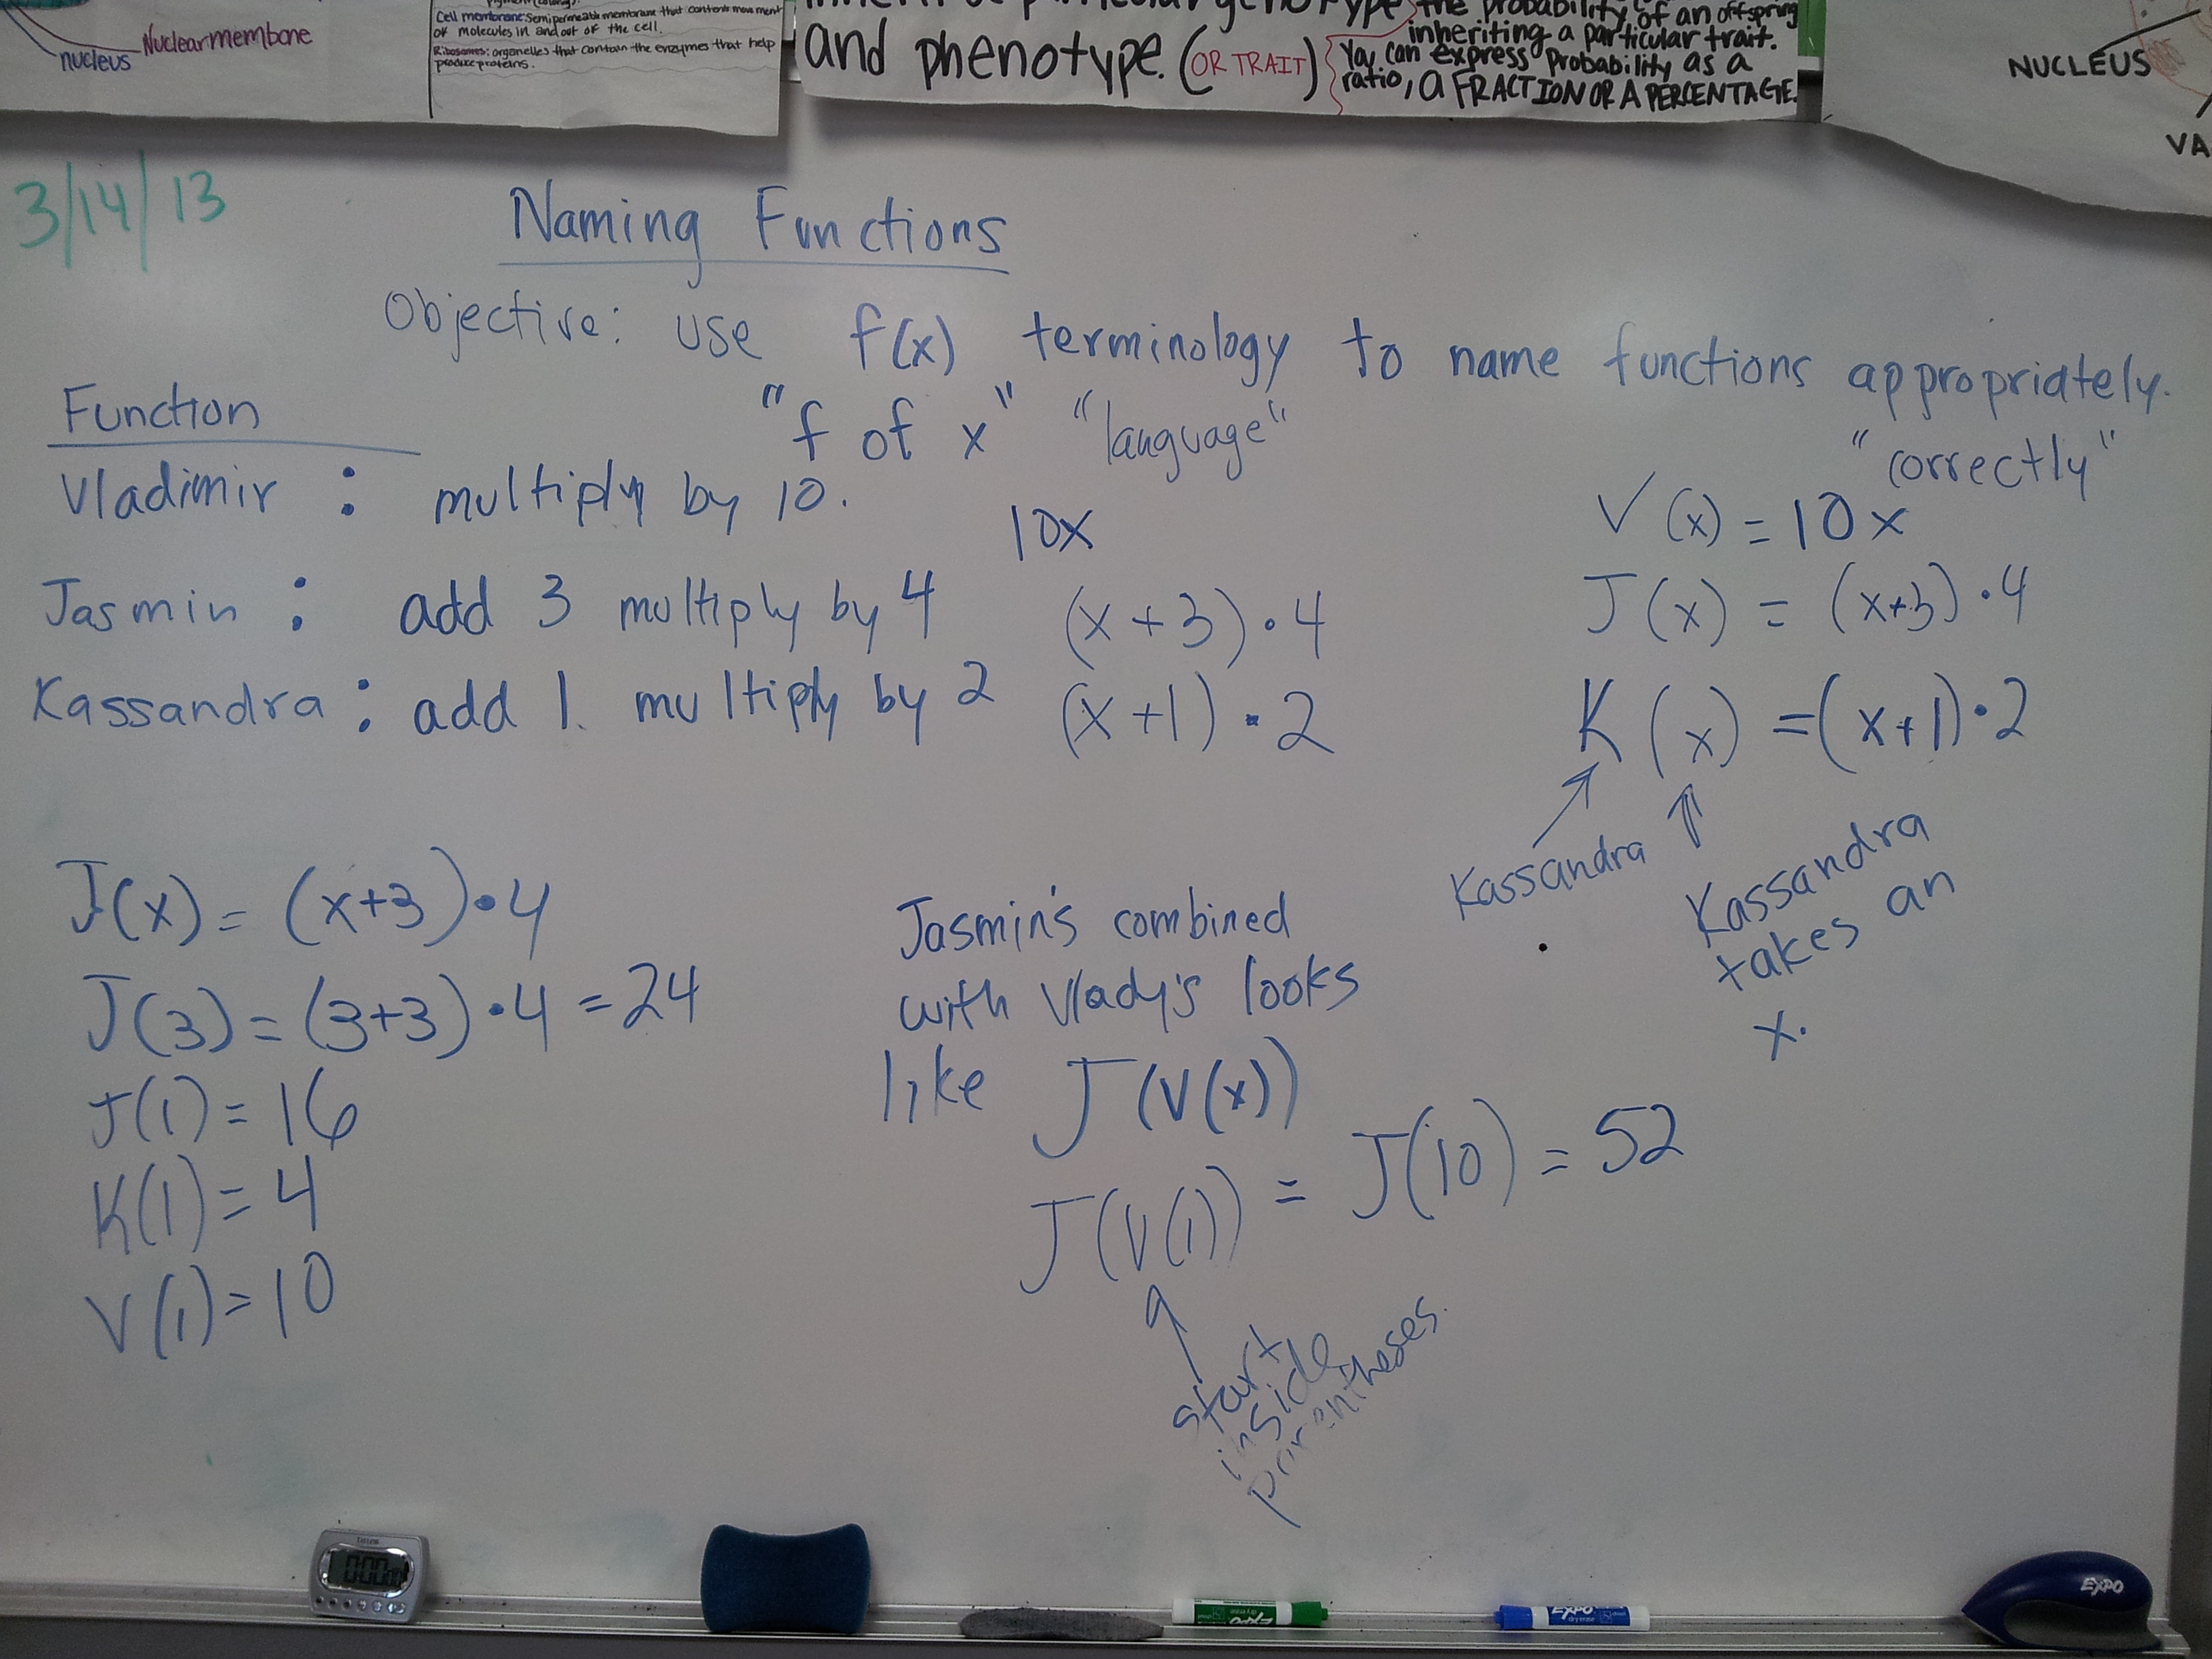 nucleus
Nuclearmembane
Cell membrane: Semipermeable membrane that contents movement
of molecules in and out of the cell.
Ribosomes: organelles that contain the enzymes that help
produce proteins.
and phenotype. (OR TRAIT)
the probability of an offspring
inheriting a particular trait.
You can express probability as a
ratio, a FRACTION OR A PERCENTAGE.
NUCLEUS
VA
3/14/13
Naming Functions
Objective: use f(x) terminology to name functions appropriately.
"f of x" "language"
"correctly"
Function
Vladimir : multiply by 10.
10x
V(x) = 10x
Jasmin : add 3 multiply by 4 (x+3)·4
J(x) = (x+3)·4
Kassandra : add 1. multiply by 2 (x+1)·2
K(x) = (x+1)·2
Kassandra
Kassandra
takes an
x.
J(x) = (x+3)·4
J(3) = (3+3)·4 = 24
J(1) = 16
K(1) = 4
V(1) = 10
Jasmin's combined
with Vlady's looks
like J(V(x))
J(V(1)) = J(10) = 52
start
inside
parentheses.
EXPO
EXPO
EXPO